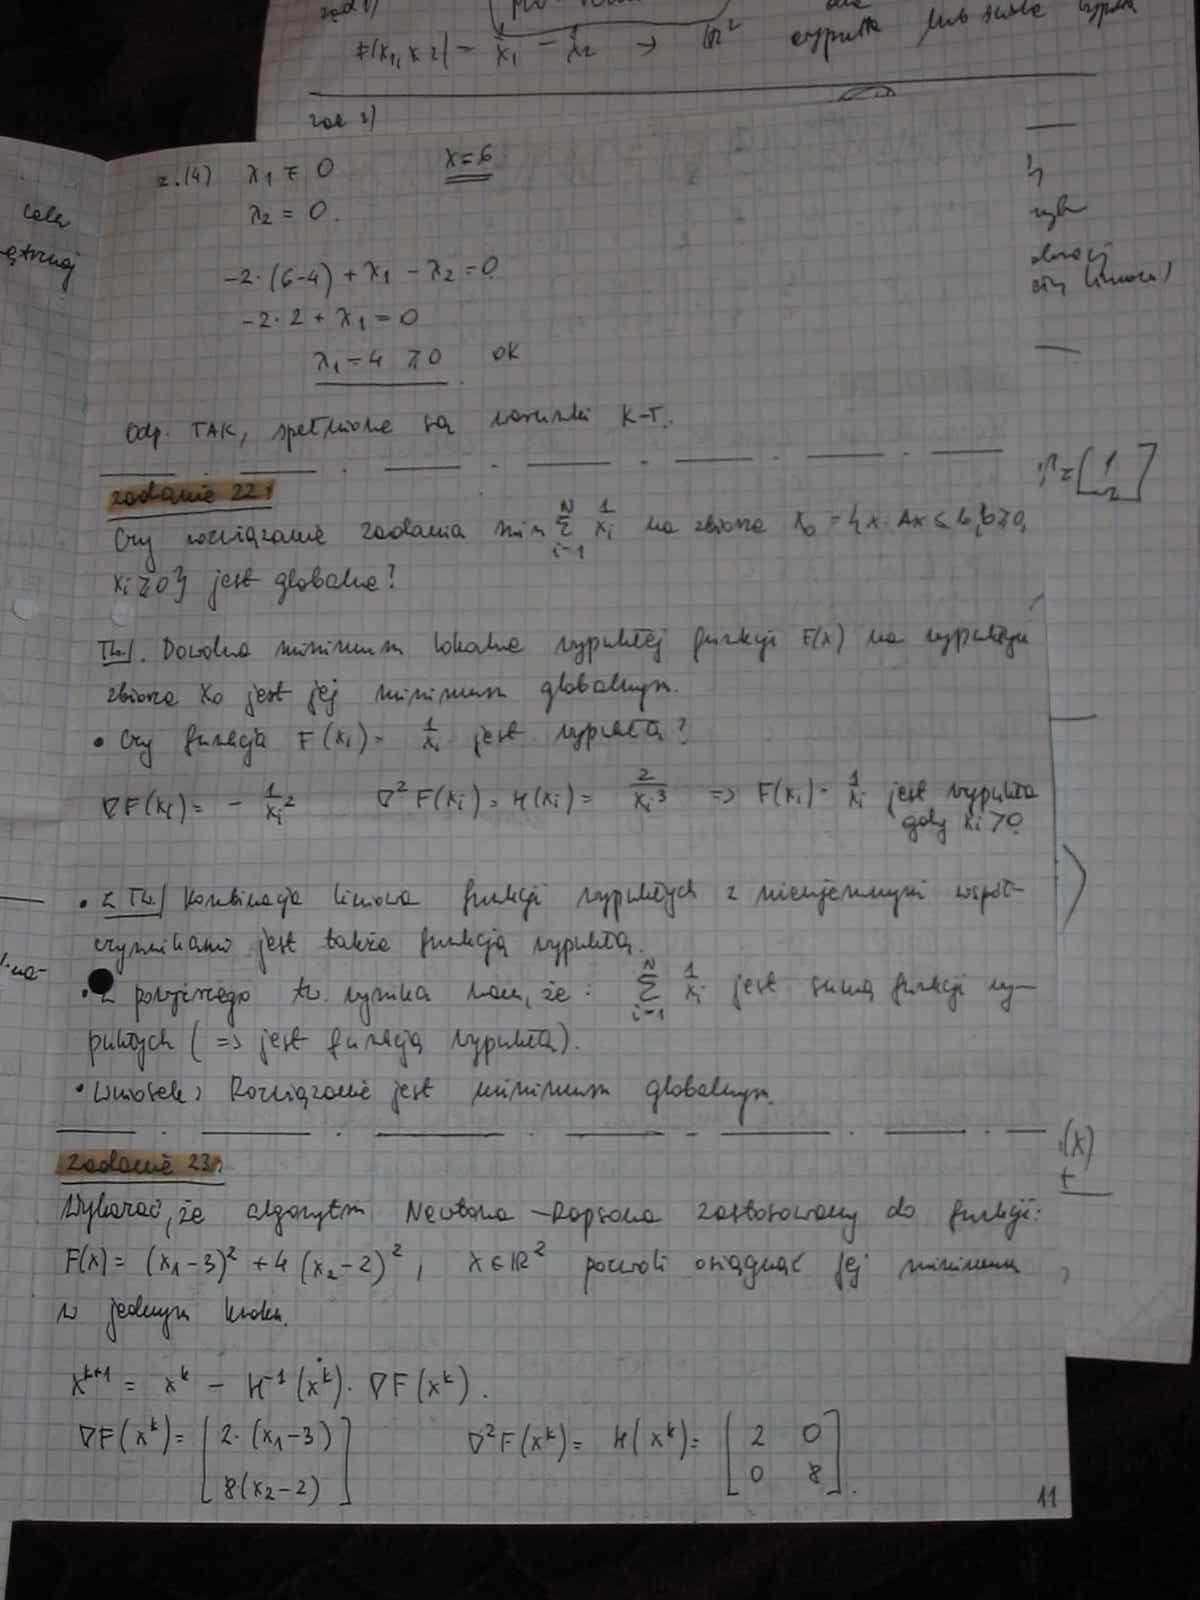 zad 1)
F(x1, x2) = x1 - x2 → R²
zad 2)
z.(4) λ1 ≠ 0 x=6
λ2 = 0.
-2·(6-4) + λ1 - λ2 = 0
-2·2 + λ1 = 0
λ1 = 4 ≥0 OK
Odp. TAK, spełnione są warunki K-T.
zadanie 22.
Czy rozwiązanie zadania min N Σ i=1 1/xi na zbiorze X0 = {x: Ax ≤ b, b≥0,
xi ≥0} jest globalne?
Tw/. Dowolne minimum lokalne wypukłej funkcji F(x) na wypukłym
zbiorze X0 jest jej minimum globalnym.
• Czy funkcja F(xi) = 1/xi jest wypukła?
∇F(xi) = - 1/xi² ∇²F(xi) = H(xi) = 2/xi³ => F(xi) = 1/xi jest wypukła
gdy xi >0
• Z Tw/ Kombinacja liniowa funkcji wypukłych z nieujemnymi współ-
czynnikami jest także funkcją wypukłą.
• Z powyższego tw. wynika nam, że: N Σ i=1 1/xi jest sumą funkcji wy-
pukłych (=> jest funkcją wypukłą).
• Wniosek: Rozwiązanie jest minimum globalnym.
Zadanie 23.
Wykazać, że algorytm Newtona-Rapsona zastosowany do funkcji:
F(x) = (x1-3)² + 4(x2-2)², x∈R² pozwoli osiągnąć jej minimum
w jednym kroku.
x^{k+1} = x^k - H^{-1}(x^k)·∇F(x^k).
∇F(x^k) = [2·(x1-3) ∇²F(x^k) = H(x^k) = [2 0
8(x2-2)] 0 8].
11